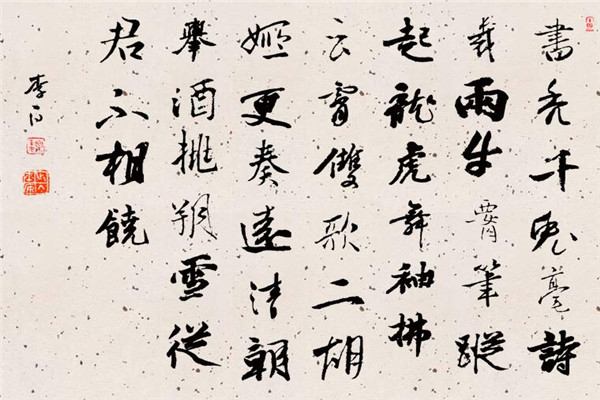 書禿千兔毫詩
裁兩牛腰筆蹤
起龍虎舞袖拂
云霄雙歌二胡
姬更奏遠清朝
舉酒挑朔雪從
君不相饒
李白